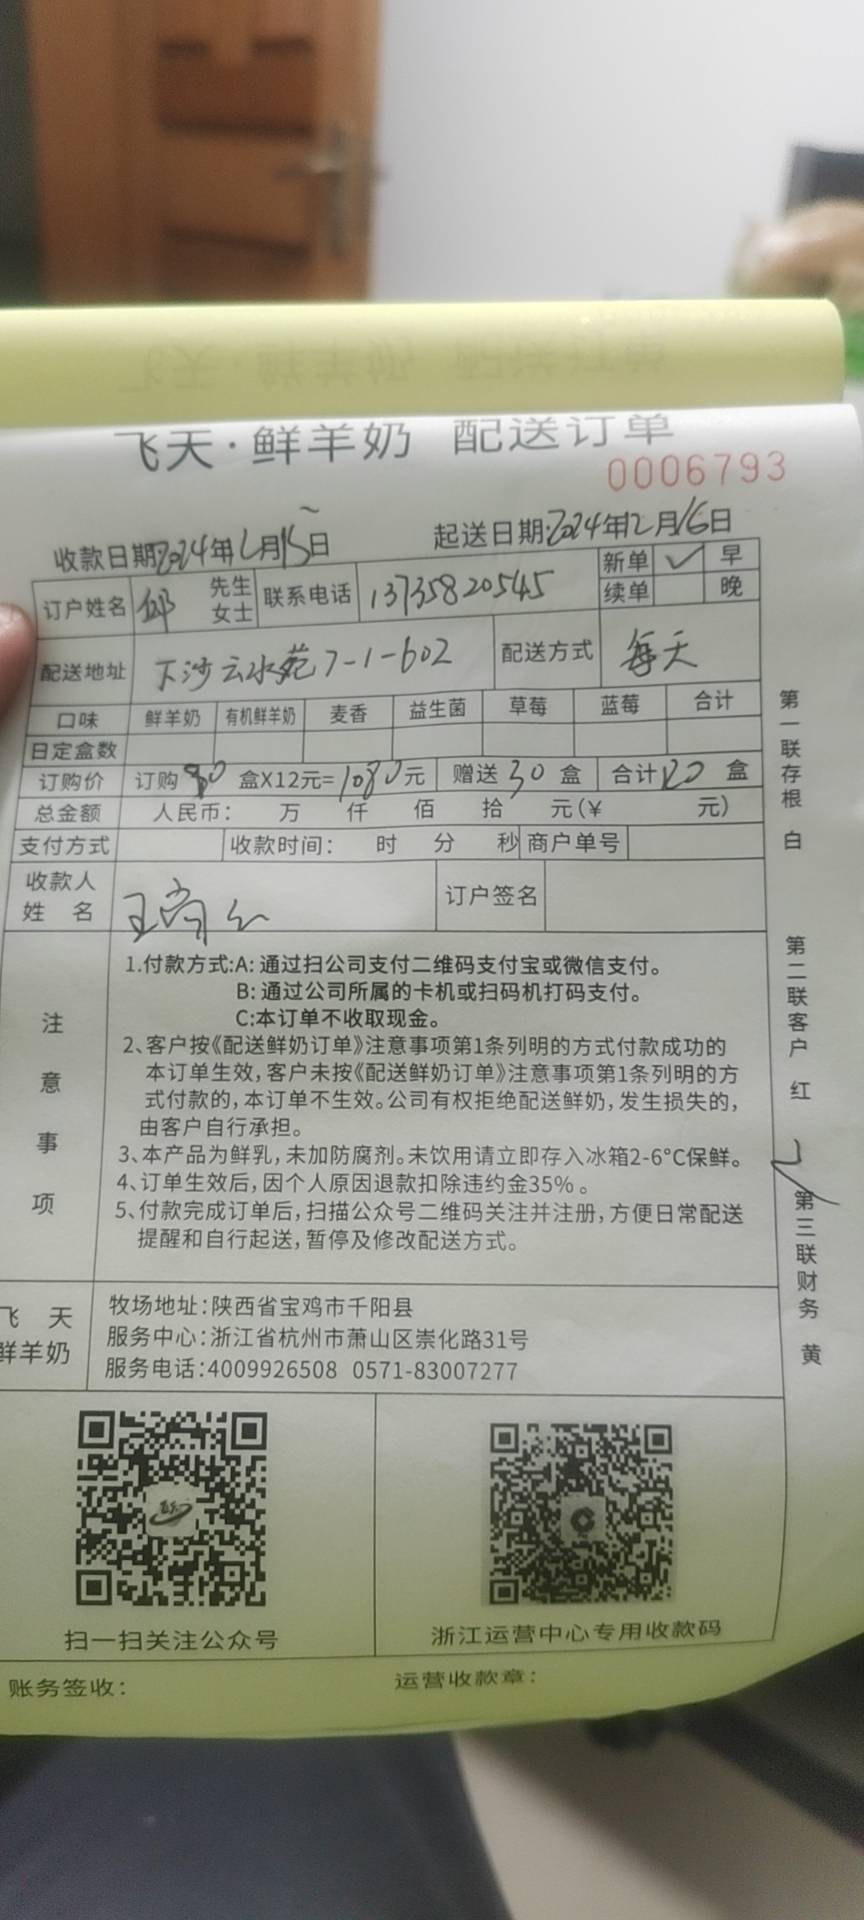 飞天·鲜羊奶 配送订单
0006793
收款日期:2024年12月15日 起送日期:2024年12月16日
订户姓名 邱 先生 女士 联系电话 13735820545 新单 ✓ 早
续单 晚
配送地址 下沙云水苑7-1-602 配送方式 每天
口味 鲜羊奶 有机鲜羊奶 麦香 益生菌 草莓 蓝莓 合计
日定盒数
订购价 订购 90 盒X12元=1080元 赠送 30 盒 合计 120 盒
总金额 人民币: 万 仟 佰 拾 元(¥ 元)
支付方式 收款时间: 时 分 秒 商户单号
收款人
姓 名 王 订户签名
注意事项
1.付款方式:A:通过扫公司支付二维码支付宝或微信支付。
B:通过公司所属的卡机或扫码机打码支付。
C:本订单不收取现金。
2、客户按《配送鲜奶订单》注意事项第1条列明的方式付款成功的
本订单生效,客户未按《配送鲜奶订单》注意事项第1条列明的方
式付款的,本订单不生效。公司有权拒绝配送鲜奶,发生损失的,
由客户自行承担。
3、本产品为鲜乳,未加防腐剂。未饮用请立即存入冰箱2-6°C保鲜。
4、订单生效后,因个人原因退款扣除违约金35%。
5、付款完成订单后,扫描公众号二维码关注并注册,方便日常配送
提醒和自行起送,暂停及修改配送方式。
飞 天
鲜羊奶
牧场地址:陕西省宝鸡市千阳县
服务中心:浙江省杭州市萧山区崇化路31号
服务电话:4009926508 0571-83007277
扫一扫关注公众号 浙江运营中心专用收款码
账务签收: 运营收款章:
第一联存根 白
第二联客户 红
第三联财务 黄